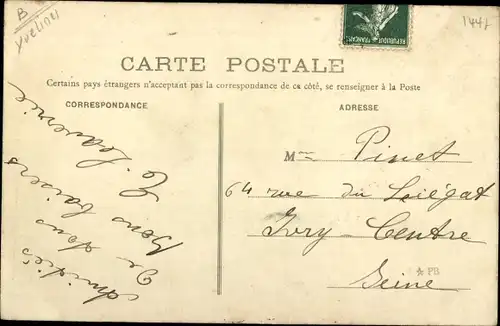 B
Yvelines
1447
REPUBLIQUE FRANÇAISE
CARTE POSTALE
Certains pays étrangers n'acceptant pas la correspondance de ce côté, se renseigner à la Poste
CORRESPONDANCE
ADRESSE
Amitiés
de tous
Bons baisers
Mme Pinet
64 rue du Liégat
Ivry-Centre
Seine
PB